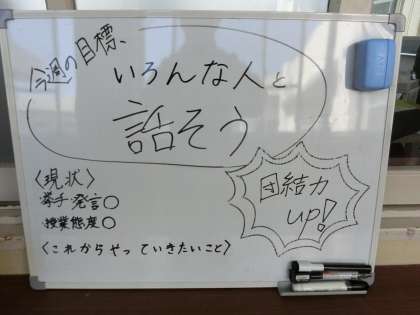 今週の目標、
いろんな人と
話そう
〈現状〉
挙手発言○
授業態度○
〈これからやっていきたいこと〉
団結力
up!